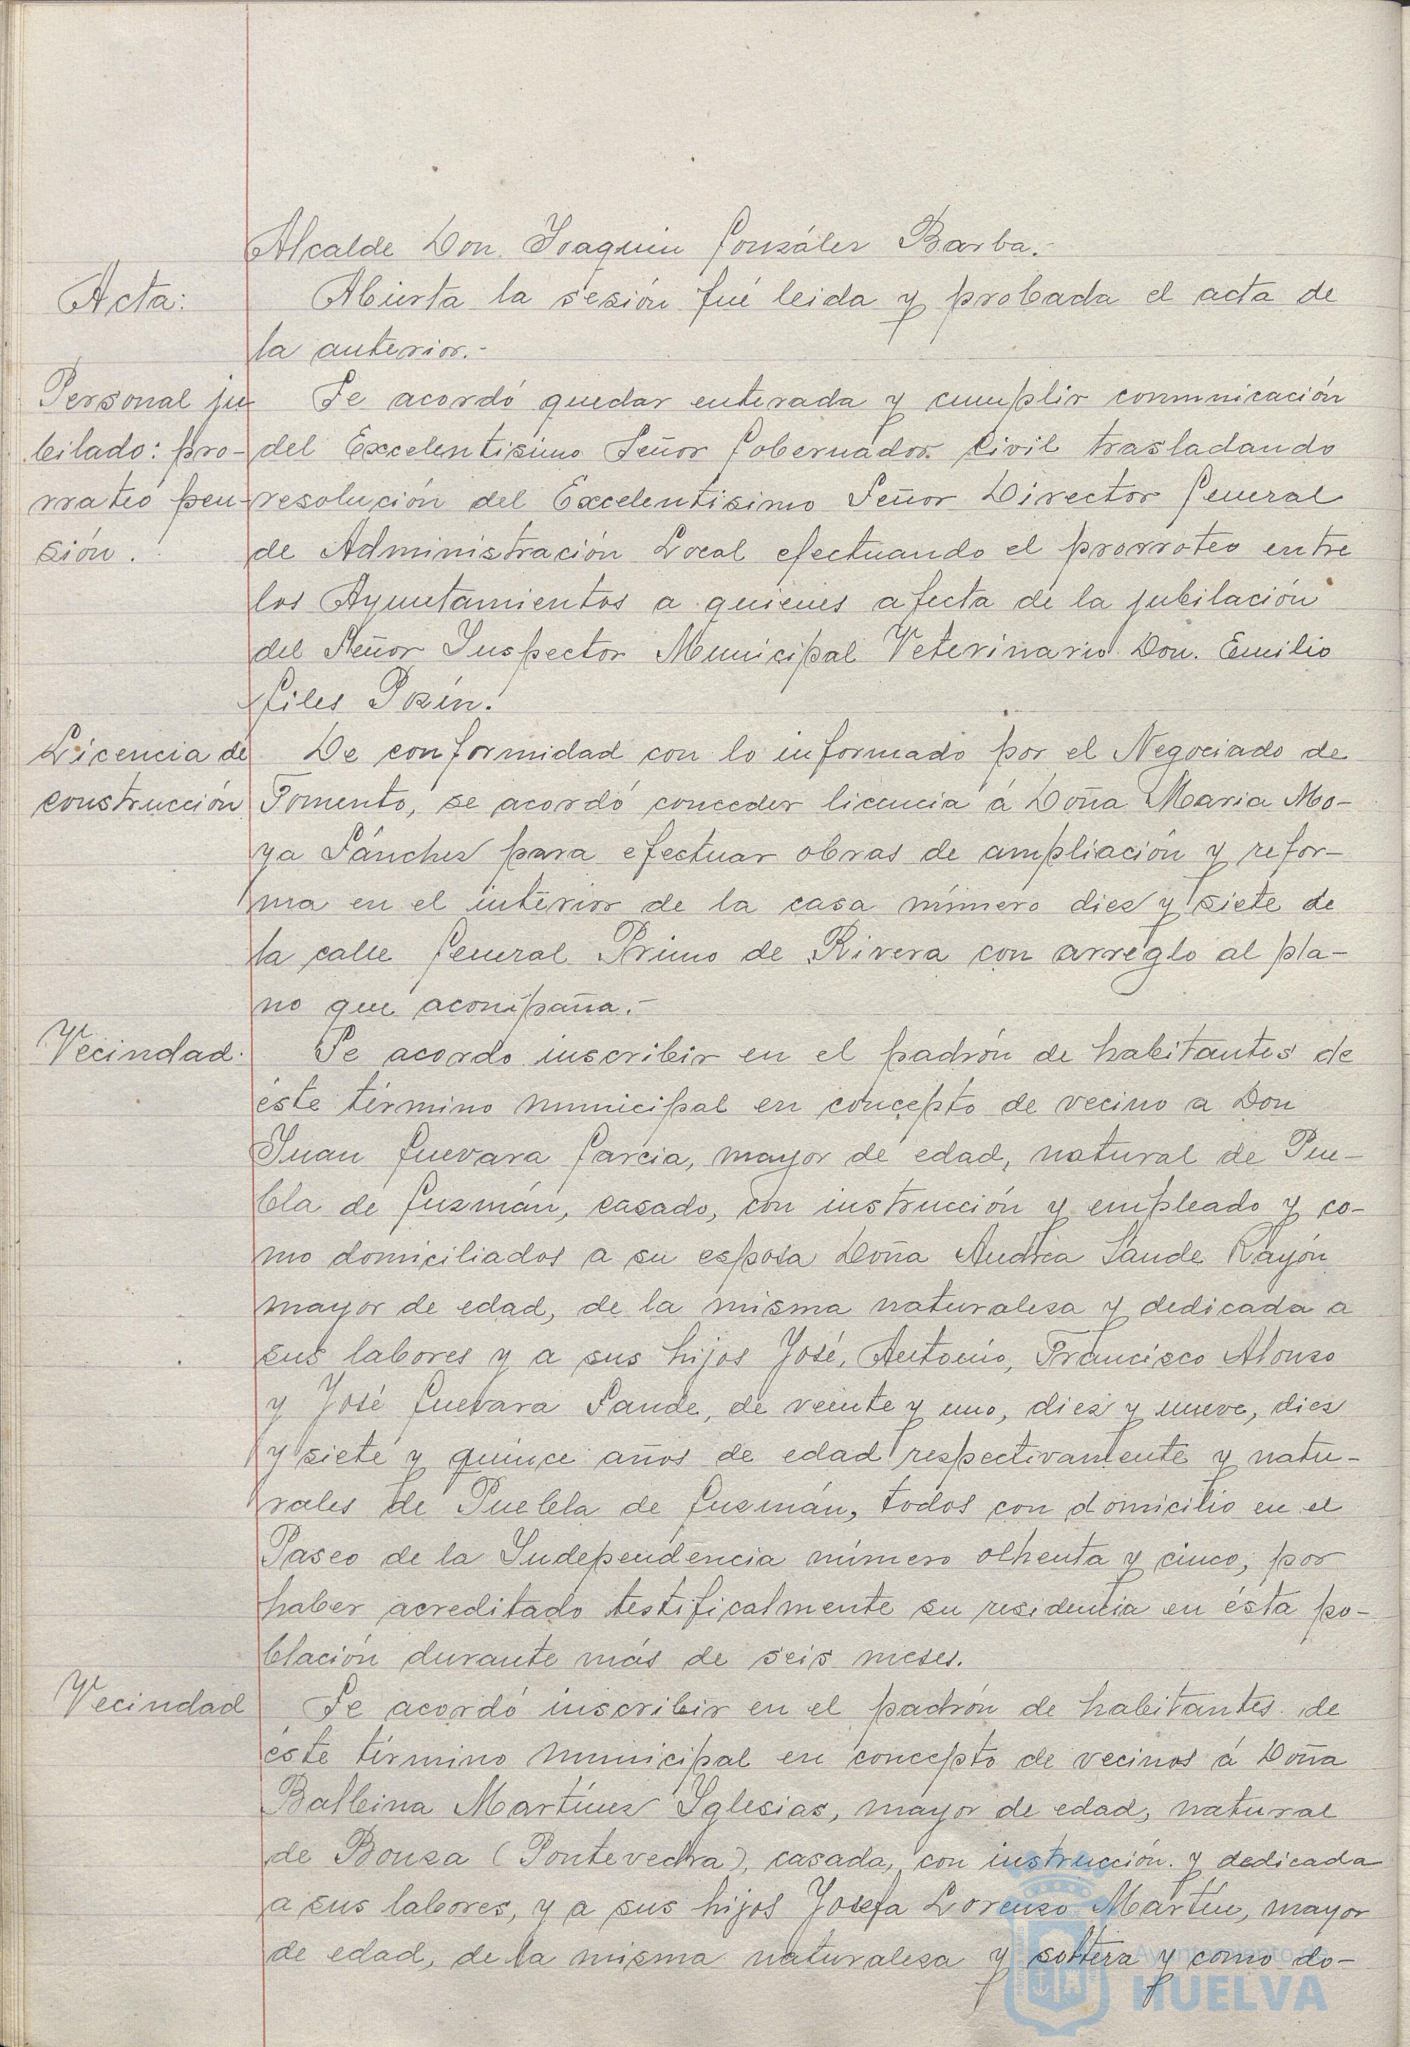 Alcalde Don Joaquin González Barba.-
Acta:
Abierta la sesión fué leida y probada el acta de
la anterior.-
Personal ju
bilado: pro-
rrateo pen-
sión.
Se acordó quedar enterada y cumplir comunicación
del Excelentisimo Señor Gobernador Civil trasladando
resolución del Excelentisimo Señor Director General
de Administración Local efectuando el prorroteo entre
los Ayuntamientos a quienes afecta de la jubilación
del Señor Inspector Municipal Veterinario Don Emilio
Giles Pozín.
Licencia de
construcción
De conformidad con lo informado por el Negociado de
Fomento, se acordó conceder licencia á Doña Maria Mo-
ya Sánchez para efectuar obras de ampliación y refor-
ma en el interior de la casa número diez y siete de
la calle General Primo de Rivera con arreglo al pla-
no que acompaña.-
Vecindad.
Se acordo inscribir en el padrón de habitantes de
éste término municipal en concepto de vecino a Don
Juan Guevara Garcia, mayor de edad, natural de Pue-
bla de Guzmán, casado, con instrucción y empleado y co-
mo domiciliados a su esposa Doña Andrea Sande Rayón
mayor de edad, de la misma naturaleza y dedicada a
sus labores y a sus hijos José, Antonio, Francisco Alonso
y José Guevara Sande, de veinte y uno, diez y nueve, diez
y siete y quince años de edad respectivamente y natu-
rales de Puebla de Guzmán, todos con domicilio en el
Paseo de la Independencia número ochenta y cinco, por
haber acreditado testificalmente su residencia en ésta po-
blación durante más de seis meses.
Vecindad
Se acordó inscribir en el padrón de habitantes de
éste término municipal en concepto de vecinos á Doña
Balbina Martínez Iglesias, mayor de edad, natural
de Bouza (Pontevedra), casada, con instrucción y dedicada
a sus labores, y a sus hijos Josefa Lorenzo Martín, mayor
de edad, de la misma naturaleza y soltera y como do-
Ayuntamiento de
HUELVA